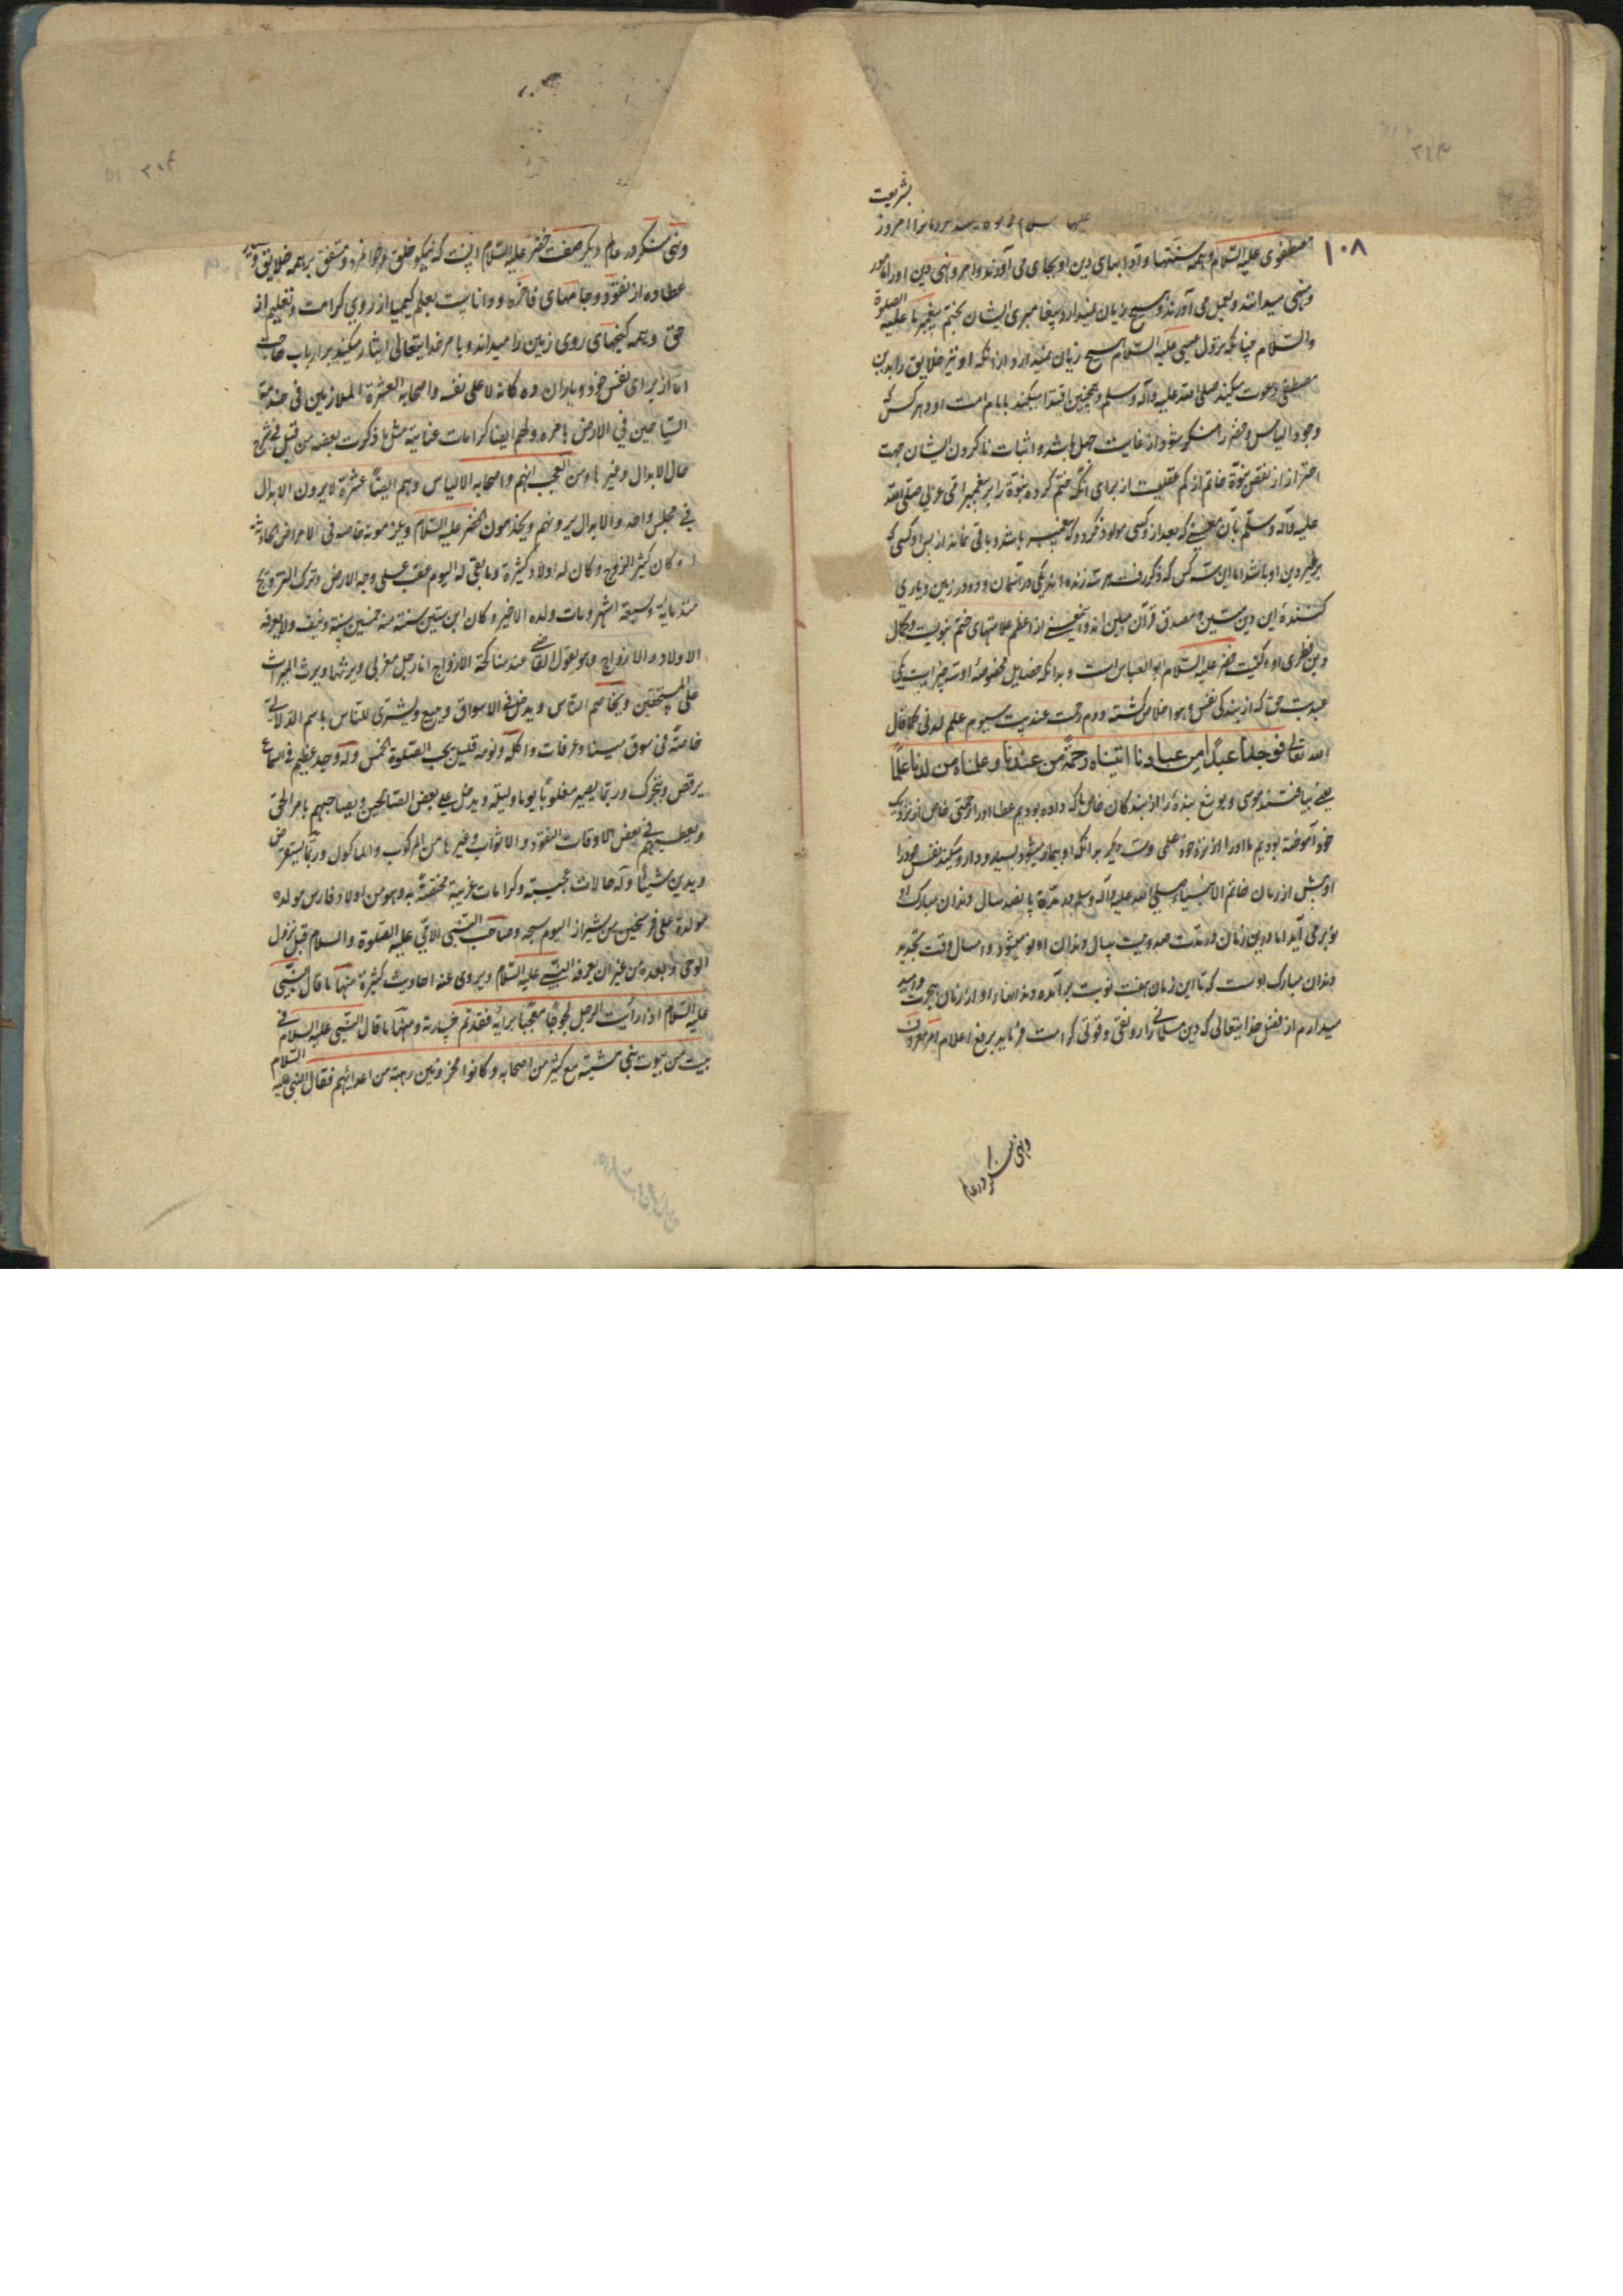 بشریعت
علیهما السلام امروز
۱۰۸
مصطفوی علیه السلام و همه سنتها و آدابهای دین او بجای می آورند و امر و نهی دین او را مامور
و منهی میدانند و بعمل می آورند و هیچ زیان نمیدارد پیغامبری ایشان بختم پیغمبر ما علیه الصلوة
والسلام چنانکه نزول عیسی علیه السلام هیچ زیان نمیدارد از آنکه او نیز خلایق را بدین
مصطفی دعوت میکند صلی الله علیه وآله وسلم و همچنین اقتدا میکند بامام امت او و هر کس که
وجود الیاس و خضر را منکر شود از غایت جهل باشد و اثبات ناکردن ایشان جهت
احتراز از نقض نبوة خاتم از کم عقلیست از برای آنکه ختم کرده نبوة را بر پیغمبر امی عربی صلی الله
علیه وآله وسلم بآن معنی که بعد از و کسی مولود نگردد که پیغمبر باشد و باقی نماند از پس او کسی که
بر غیر دین او باشد اما این سه کس که ذکر رفت هر سه زنده اند یکی در آسمان و دو در زمین و یاری
کننده این دین متین و مصدق قرآن مبین اند و این معنی از اعظم علامتهای ختم نبویست و کمال
دین فطری او و کنیت خضر علیه السلام ابو العباس است و بدانکه فضایل مخصوصه او سه چیز است یکی
عبدیت حق که از بندگی نفس و هوا خلاص گشته دوم رحمت عندیت سیوم علم لدنی کما قال
الله تعالی فوجدنا عبدا من عبادنا آتیناه رحمة من عندنا وعلمناه من لدنا علما
یعنی بیافتند موسی و یوشع بنده را از بندگان خاص ما که داده بودیم عطا او را رحمتی خاص از نزدیک
خود آموخته بودیم ما او را از نزد خود علمی و بدانکه او بیمار میشود بسیار و دارو میکند نفس خود را
او پیش از زمان خاتم الانبیاء صلی الله علیه وآله وسلم در مدت پانصد سال دندان مبارک او
نو بر می آید اما درین زمان در مدت صد و بیست سال دندان او نو میشود و امسال وقت تجدید
دندان مبارک اوست که تا این زمان هفت نوبت بر آمده دندانهاء او از زمان هجرت و امید
میدارم از فضل خدایتعالی که دین مسلمانی را رونقی و قوتی کرامت فرماید برفع اعلام امر معروف
ونهی منکر در عام
ونهی منکر در عام دیگر صفت خضر علیه السلام آنست که نیکو خلق و جوانمرد و مشفق بر همه خلایق و
عطا ده از نقود و جامهای فاخره و داناست بعلم کیمیا از روی کرامت و تعلیم از
حق و همه گنجهای روی زمین را میداند و بامر خدایتعالی ایثار میکند بر ارباب حاجت
اما از برای نفس خود و یاران ده گانه لا علی نفسه واصحابه العشرة الملازمین فی خدمته
السیاحین فی الارض بامره ولهم ایضا کرامات عنایته مثل ما ذکرت بعضه من قبل فی شرح
حال الابدال وغیرها ومن العجب انهم واصحابه الالیاس وهم ایضا عشرة لا یرون الابدال
فی مجلس واحد والابدال یرونهم ویخدمون الخضر علیه السلام ویلزمونه خاصه فی الامراض الحادثة
وکان کثیر الزوج وکان له اولاد کثیرة وما بقی له الیوم عقب علی وجه الارض وترک التزویج
منذ مایة وسبعة اشهر ومات ولده الاخیر وکان ابن ستین سنة منذ خمسین سنة ونیف ولا یعرفه
الاولاد والازواج وهو یقول للقاضی عند مناکحة الازواج انا رجل مغربی ویرثها ویرث المیراث
علی المستحقین ویخاصم الناس ویدخل فی الاسواق ویبیع ویشتری للناس باسم الدلالی
خاصة فی سوق مینا وعرفات واکله ونومه قلیل یحب الصلوة الخمس وله وجد عظیم فی السماع
یرقص ویتحرک وربما یصیر مغلوبا یوما ولیلة ویدخل علی بعض الصالحین ویصاحبهم بامر الحق
ویعطیهم فی بعض الاوقات النقود والاثواب وغیرها من المرکوب والماکول وربما یستقرض
ویدین شیئا وله حالات عجیبة وکرامات غریبة مختصة به وهو من اولاد فارس مولده
مولدة علی فرسخین من شیراز الیوم وصاحب النبی الامی علیه الصلوة والسلام قبل نزول
الوحی وبعده من غیر ان یعرفه النبی علیه السلام ویروی عنه احادیث کثیرة منها ما قال النبی
علیه السلام اذا رایت الرجل لجوجا معجبا برأیه فقد تم خسارته ومنها ما قال النبی علیه السلام فی
بیت من بیوت بنی شیبه مع کثیر من اصحابه وکانوا محزونین رهبة من اعدائهم فقال النبی علیه السلام